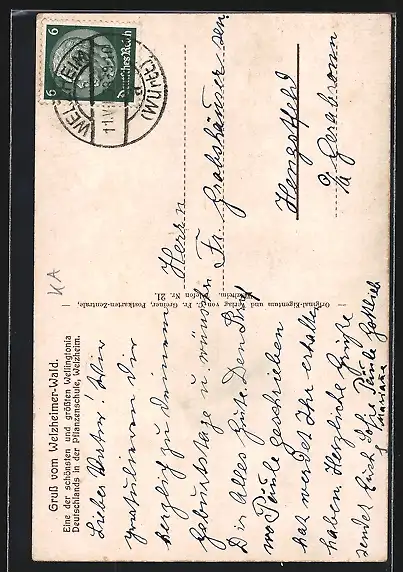 Gruß vom Welzheimer-Wald.
Eine der schönsten und größten Wellingtonia
Deutschlands in der Pflanzenschule, Welzheim.
Lieber Vater! Wir
gratulieren Dir
herzlich zu Deinem
Geburtstage u. wünschen
Dir Alles Gute. Den Brief
wo Paule geschrieben
hat werdet Ihr erhalten
haben. Herzliche Grüße
sendet Euch Sofie Paule Gottlieb
Mariana
Original-Eigentum und Verlag von C. Fr. Greiner, Postkarten-Zentrale,
Welzheim. Telefon Nr. 21.
KA
6 6
Deutsches Reich
WELZHEIM
(WÜRTT.)
Herrn
Fr. Grabshäuser sen.
Hengstfeld
b/ Gerabronn